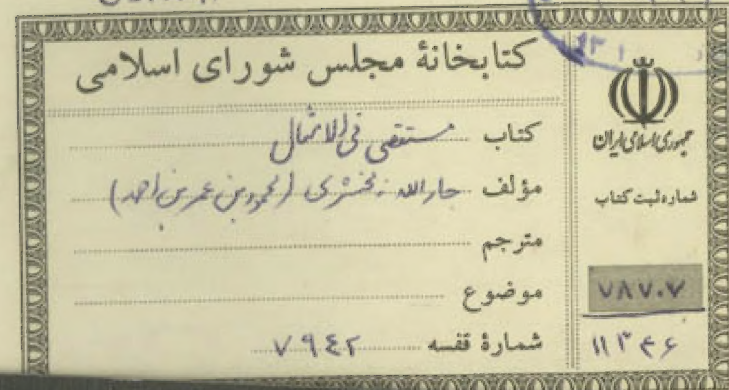 کتابخانهٔ مجلس شورای اسلامی
کتاب مستقصی فی الامثال
مؤلف جارالله زمخشری (محمود بن عمر بن احمد)
مترجم
موضوع
شمارهٔ قفسه ۷۹۴۲
جمهوری اسلامی ایران
شماره ثبت کتاب
۷۸۷۰۷
۱۱۳۴۶